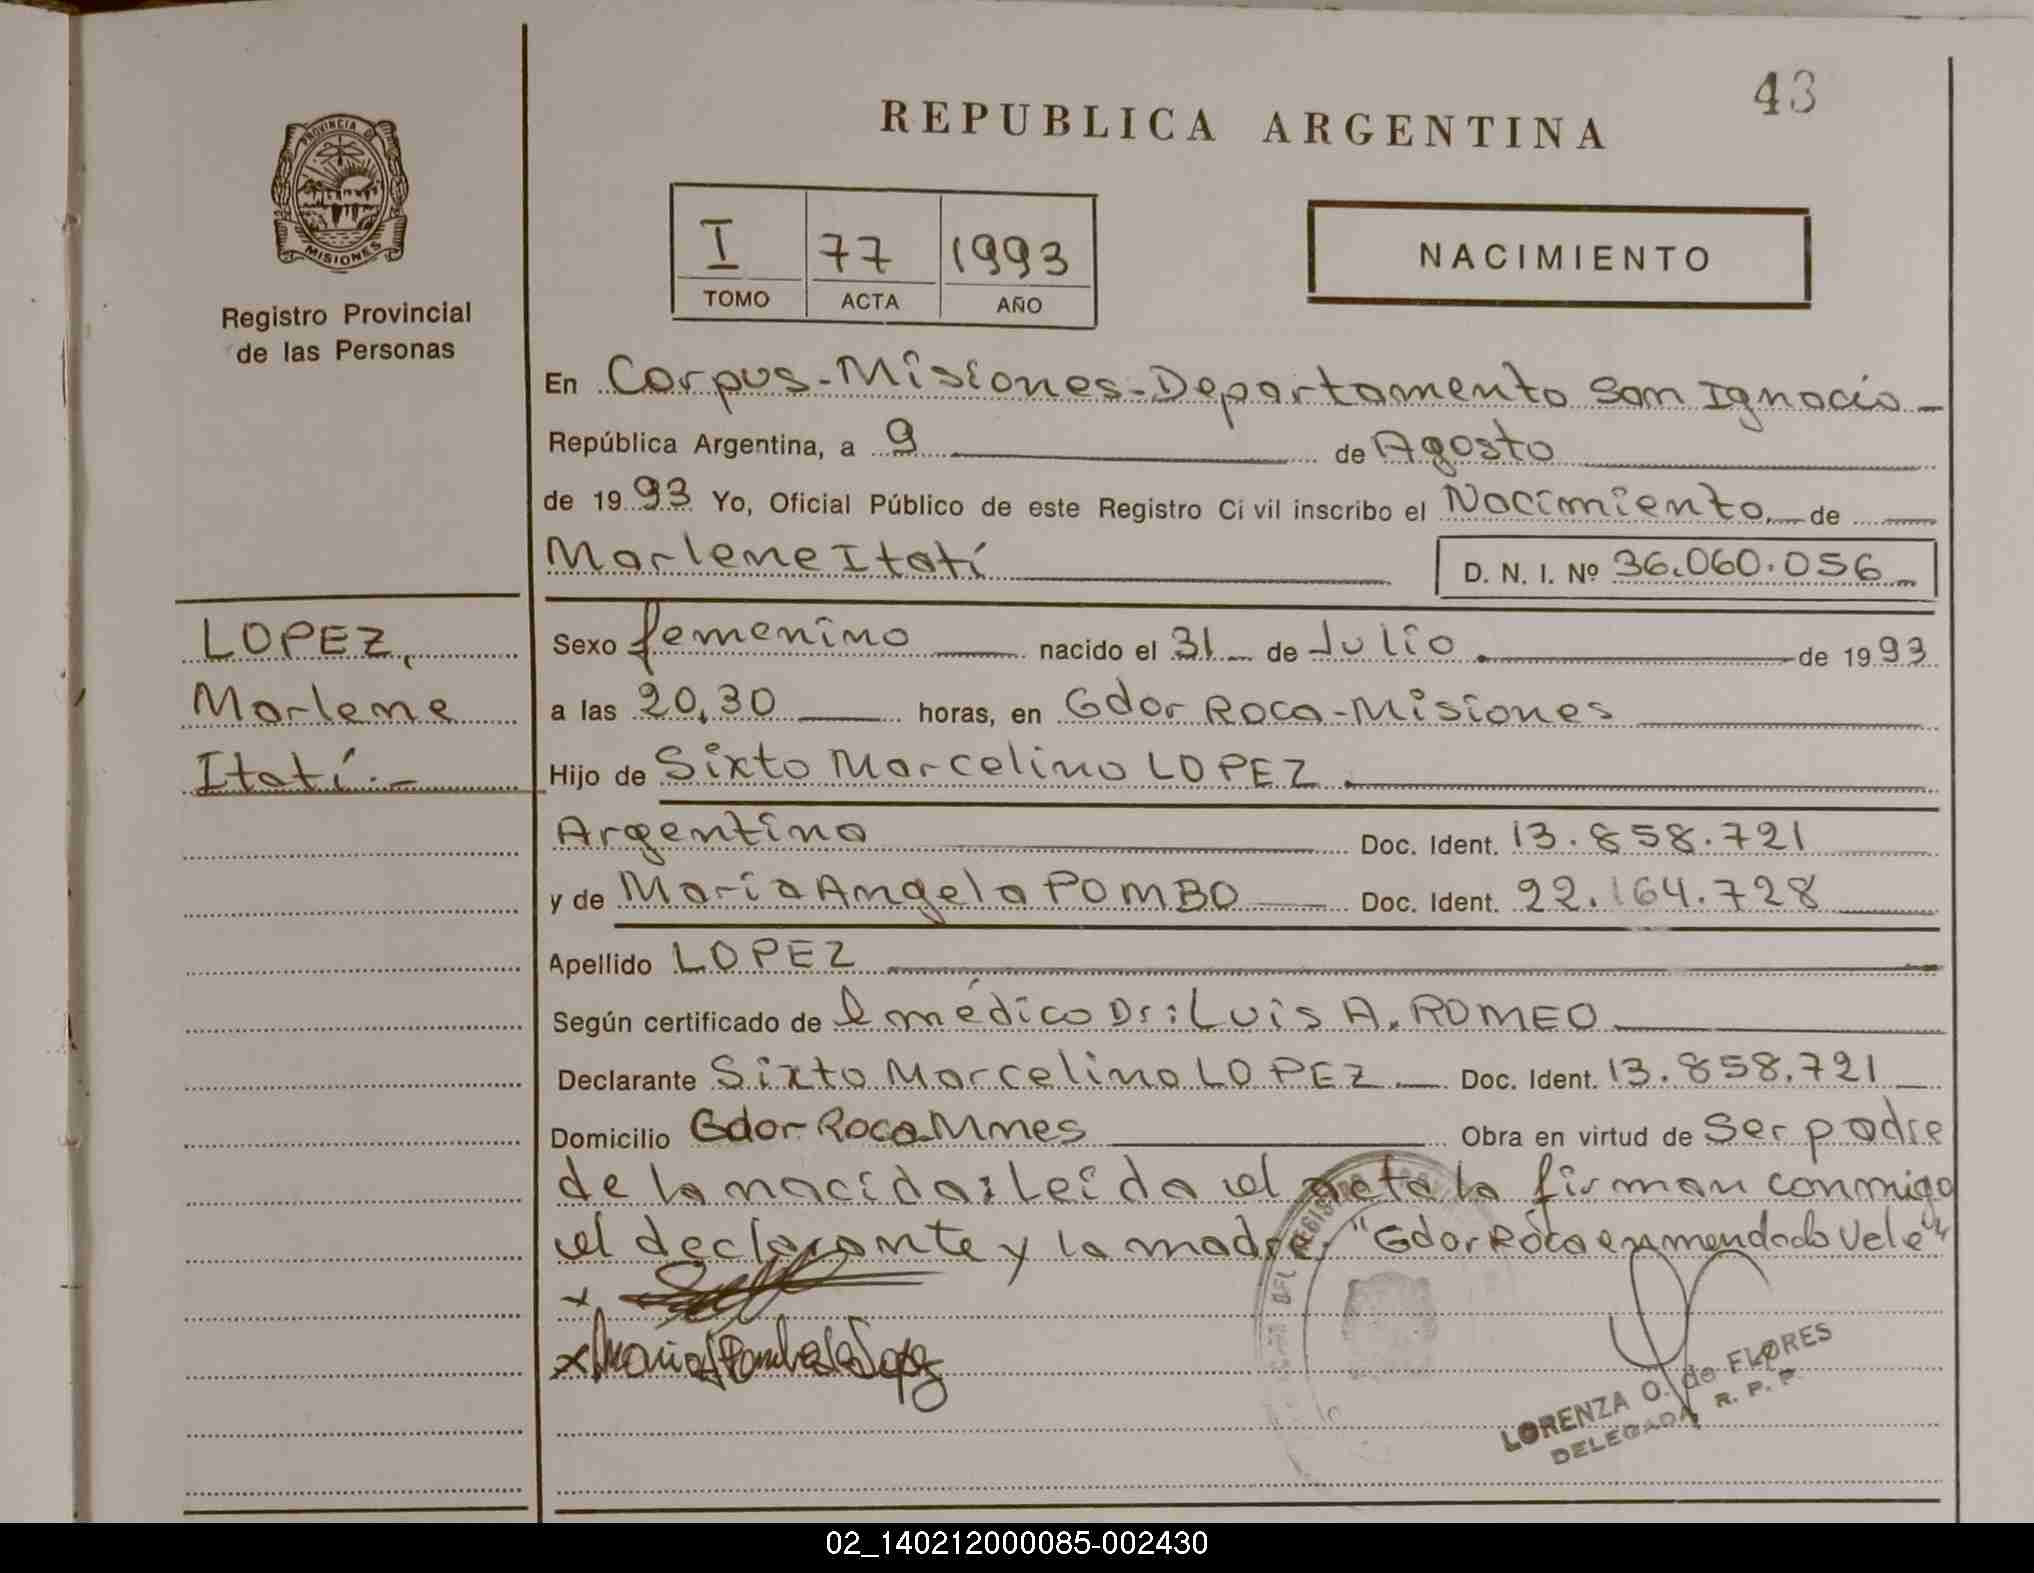 43
REPUBLICA ARGENTINA
PROVINCIA D
MISIONES
Registro Provincial
de las Personas
I 77 1993
TOMO ACTA AÑO
NACIMIENTO
En Corpus-Misiones-Departamento San Ignacio
República Argentina, a 9 de Agosto
de 1993 Yo, Oficial Público de este Registro Ci vil inscribo el Nacimiento de
Marlene Itatí D. N. I. Nº 36.060.056
LOPEZ,
Marlene
Itatí.-
Sexo femenino nacido el 31 de Julio de 1993
a las 20,30 horas, en Gdor Roca-Misiones
Hijo de Sixto Marcelino LOPEZ.
Argentino Doc. Ident. 13.858.721
y de María Angela POMBO Doc. Ident. 22.164.728
Apellido LOPEZ
Según certificado de l médico Dr: Luis A. ROMEO
Declarante Sixto Marcelino LOPEZ Doc. Ident. 13.858.721
Domicilio Gdor Roca Mnes Obra en virtud de Ser padre
de la nacida: Leída el acta la firman conmigo
el declarante y la madre. "Gdor Roca enmendado Vale"
x
x María
LORENZA O. de FLORES
DELEGADA R. P. P.
02_140212000085-002430